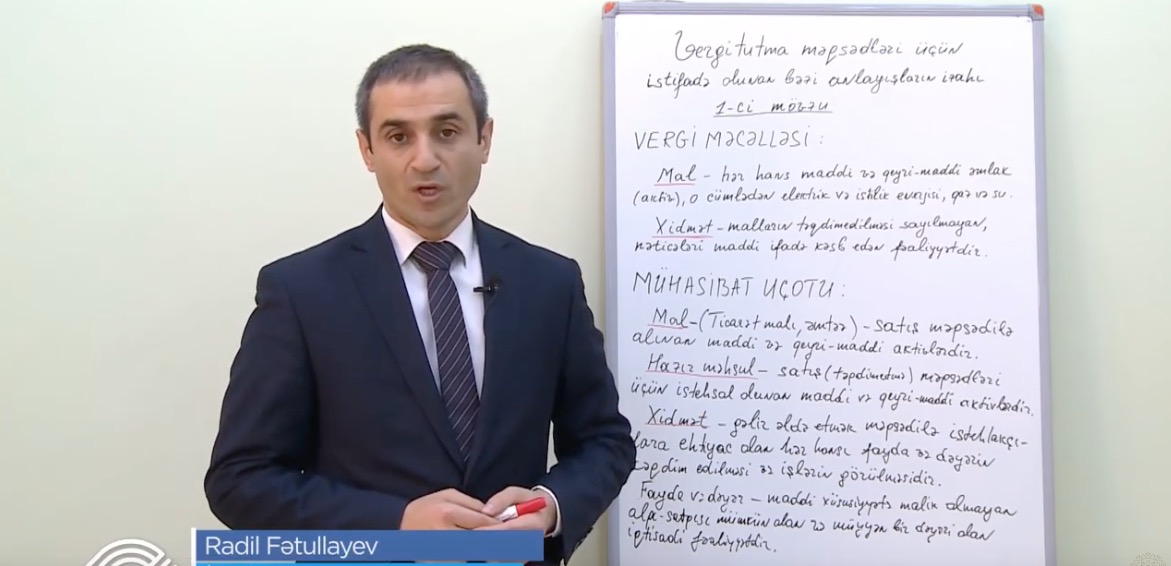 Vergitutma məqsədləri üçün
istifadə olunan bəzi anlayışların izahı
1-ci mövzu
VERGİ MƏCƏLLƏSİ:
Mal - hər hansı maddi və qeyri-maddi əmlak
(aktiv), o cümlədən elektrik və istilik enerjisi, qaz və su.
Xidmət - malların təqdimedilməsi sayılmayan,
nəticələri maddi ifadə kəsb edən fəaliyyətdir.
MÜHASİBAT UÇOTU:
Mal - (Ticarət malı, əmtəə) - satış məqsədilə
alınan maddi və qeyri-maddi aktivlərdir.
Hazır məhsul - satış (təqdimetmə) məqsədləri
üçün istehsal olunan maddi və qeyri-maddi aktivlərdir.
Xidmət - gəlir əldə etmək məqsədilə istehlakçı-
lara ehtiyac olan hər hansı fayda və dəyərin
təqdim edilməsi və işlərin görülməsidir.
Fayda və dəyər - maddi xüsusiyyətə malik olmayan
alqı-satqısı mümkün olan və müəyyən bir dəyəri olan
iqtisadi fəaliyyətdir.
Radil Fətullayev